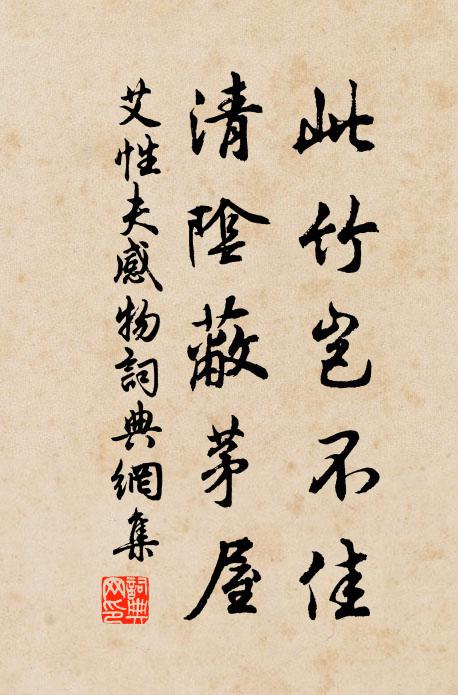 此竹岂不佳
清陰蔽茅屋
艾性夫感物詞典網集
詞典網印